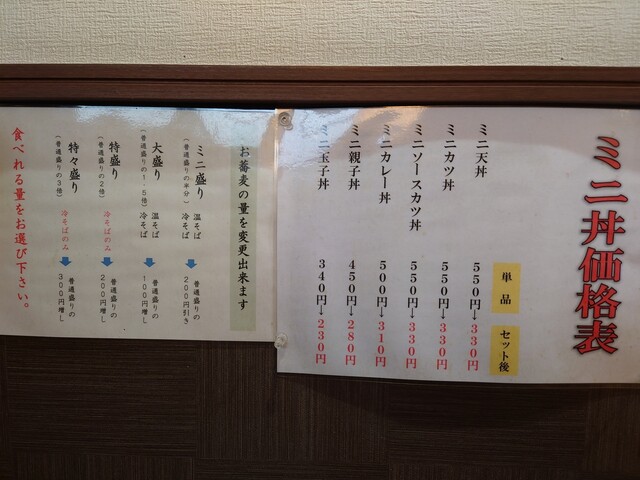 ミニ丼価格表
単品 セット後
ミニ天丼 550円→330円
ミニカツ丼 550円→330円
ミニソースカツ丼 550円→330円
ミニカレー丼 500円→310円
ミニ親子丼 450円→280円
ミニ玉子丼 340円→230円
お蕎麦の量を変更出来ます
ミニ盛り 温そば 普通盛りの
(普通盛りの半分) 冷そば 200円引き
大盛り 温そば 普通盛りの
(普通盛りの1.5倍) 冷そば 100円増し
特盛り 普通盛りの
(普通盛りの2倍) 冷そばのみ 200円増し
特々盛り 普通盛りの
(普通盛りの3倍) 冷そばのみ 300円増し
食べれる量をお選び下さい。